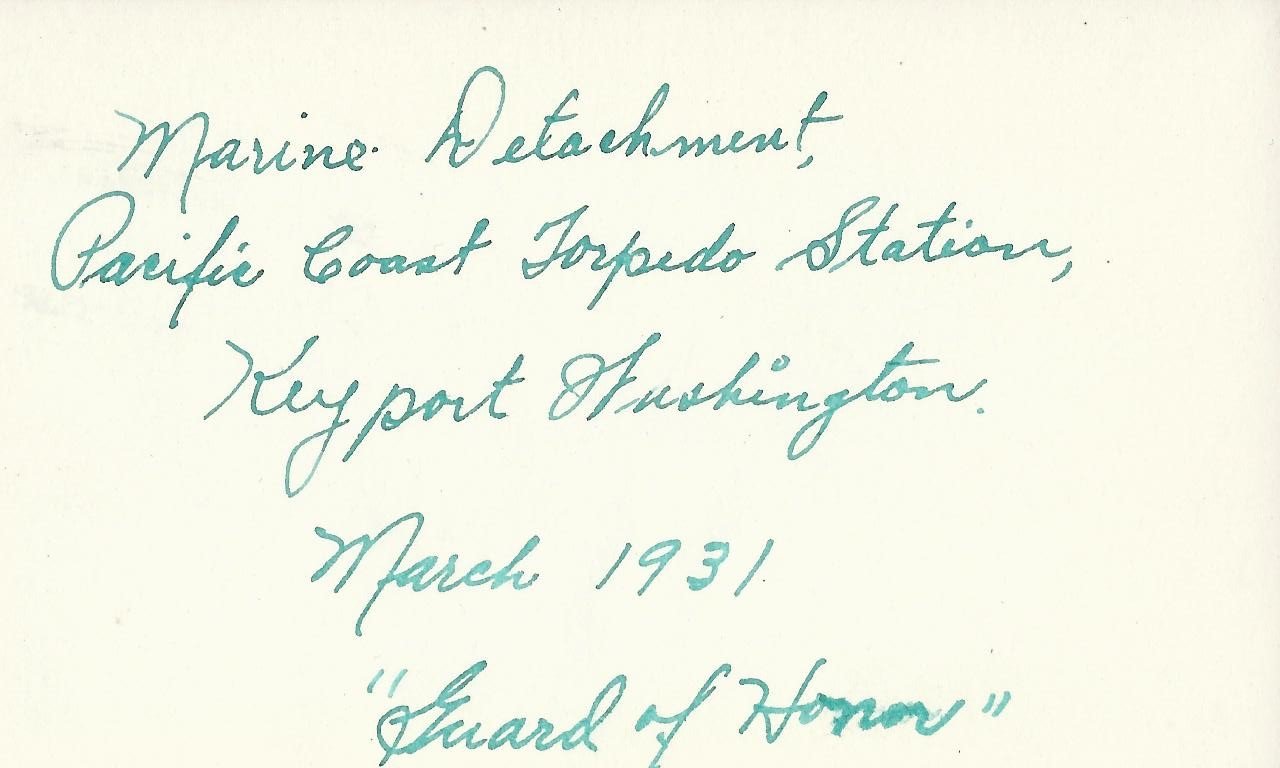 Marine Detachment,
Pacific Coast Torpedo Station,
Keyport Washington.
March 1931
"Guard of Honor"